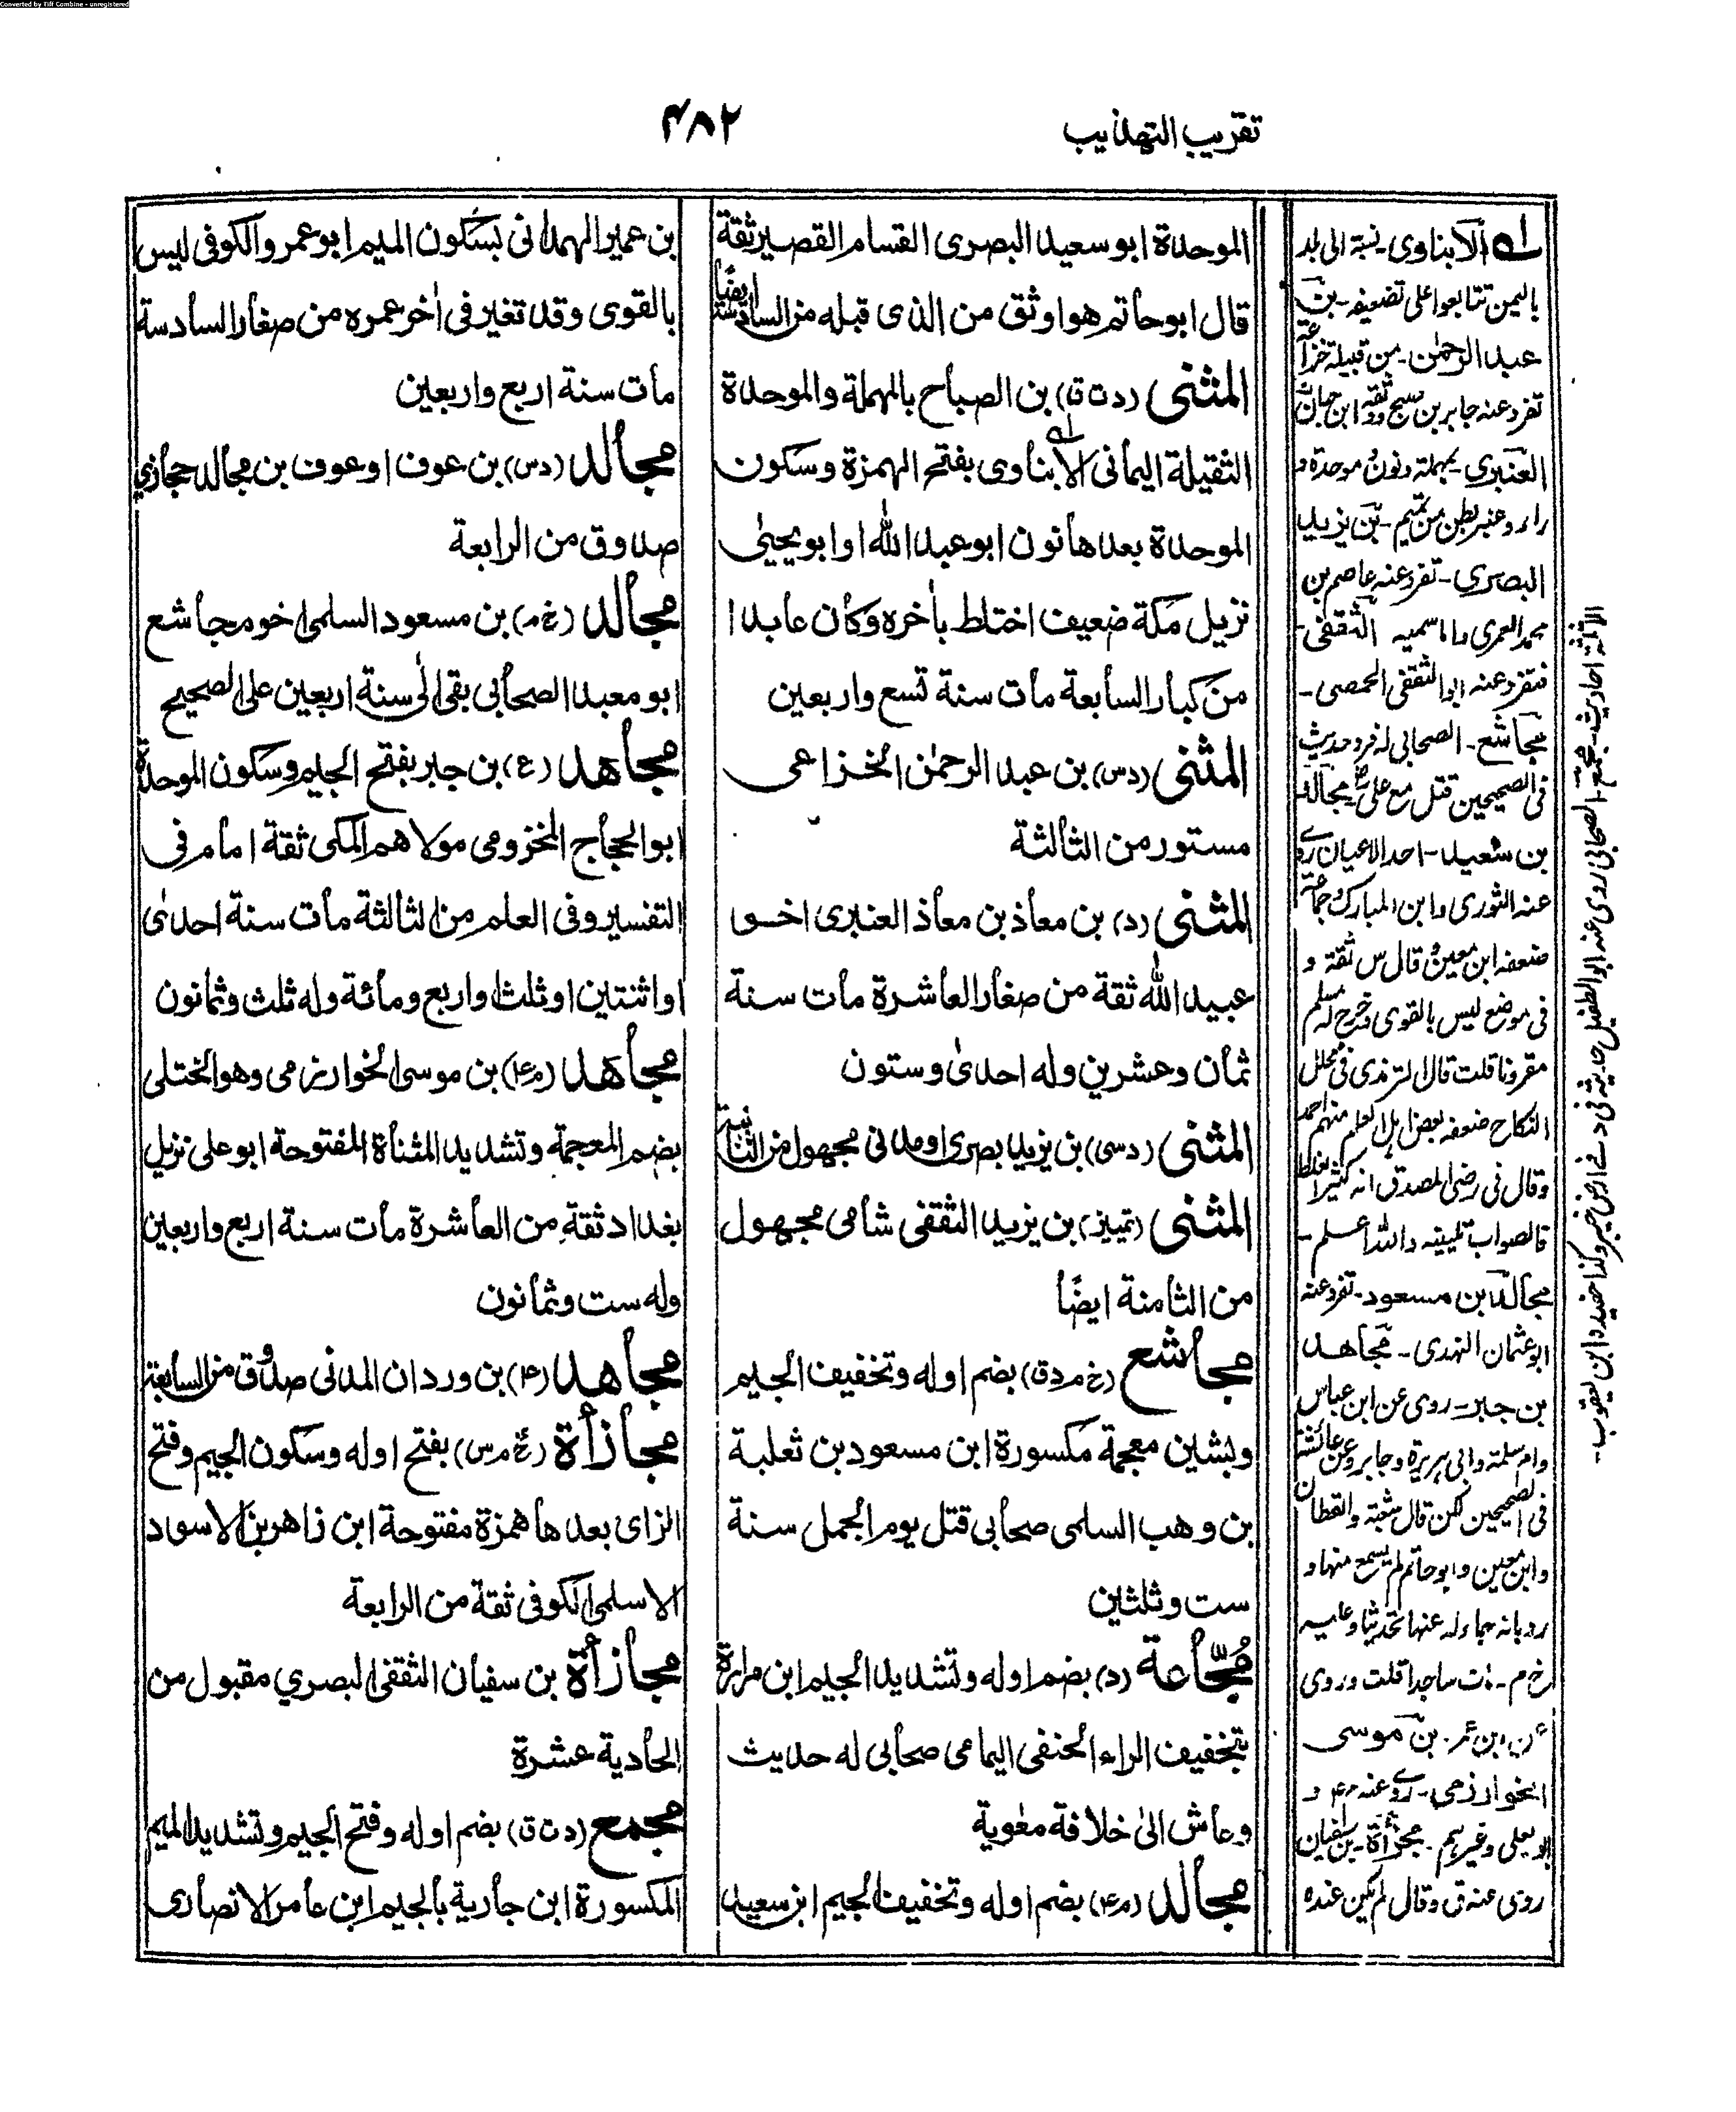 Converted by Tiff Combine - unregistered
تقريب التهذيب
٤٨٢
الموحدة ابو سعيد البصرى القسام القصير ثقة
قال ابو حاتم هو اوثق من الذى قبله من السادسة ايضًا
المثنى (د ت ق) بن الصباح بالمهملة والموحدة
الثقيلة اليمانى الابناوى بفتح الهمزة وسكون
الموحدة بعدها نون ابو عبد الله او ابو يحيى
نزيل مكة ضعيف اختلط بأخره وكان عابدا
من كبار السابعة مات سنة تسع واربعين
المثنى (د س) بن عبد الرحمٰن الخزاعى
مستور من الثالثة
المثنى (د) بن معاذ بن معاذ العنبرى اخو
عبيد الله ثقة من صغار العاشرة مات سنة
ثمان وعشرين وله احدىٰ وستون
المثنى (د سى) بن يزيد بصرى او مدنى مجهول من الثامنة
المثنى (تمييز) بن يزيد الثقفى شامى مجهول
من الثامنة ايضًا
مجاشع (خ م د ق) بضم اوله وتخفيف الجيم
وبشين معجمة مكسورة ابن مسعود بن ثعلبة
بن وهب السلمى صحابى قتل يوم الجمل سنة
ست وثلثين
مُجّاعة (د) بضم اوله وتشديد الجيم ابن مرارة
بتخفيف الراء الحنفى اليمامى صحابى له حديث
وعاش الىٰ خلافة معٰوية
مجالد (م ٤) بضم اوله وتخفيف الجيم ابن سعيد
بن عمير الهمدانى بسكون الميم ابو عمرو الكوفى ليس
بالقوى وقد تغير فى اٰخر عمره من صغار السادسة
مات سنة اربع واربعين
مجالد (د س) بن عوف او عوف بن مجالد حجازي
صدوق من الرابعة
مجالد (خ م) بن مسعود السلمى اخو مجاشع
ابو معبد الصحابى بقى الىٰ سنة اربعين على الصحيح
مجاهد (ع) بن جبر بفتح الجيم وسكون الموحدة
ابو الحجاج المخزومى مولاهم المكى ثقة امام فى
التفسير وفى العلم من الثالثة مات سنة احدىٰ
او اثنتين او ثلث او اربع ومائة وله ثلث وثمانون
مجاهد (م ٤) بن موسى الخوارزمى وهو الختلى
بضم المعجمة وتشديد المثناة المفتوحة ابو على نزيل
بغداد ثقة من العاشرة مات سنة اربع واربعين
وله ست وثمانون
مجاهد (٤) بن وردان المدنى صدوق من السابعة
مجازأة (خ م س) بفتح اوله وسكون الجيم وفتح
الزاى بعدها همزة مفتوحة ابن زاهر بن الاسود
الاسلمى الكوفى ثقة من الرابعة
مجازأة بن سفيان الثقفى البصري مقبول من
الحادية عشرة
مجمع (د ت ق) بضم اوله وفتح الجيم وتشديد الميم
المكسورة ابن جارية بالجيم ابن عامر الانصارى
له الابناوى - نسبة الى بلد
باليمن تتابعوا على تضعيفه - بن
عبد الرحمٰن - من قبيلة خزاعة
تفرد عنه جابر بن صبح وثقه ابن حبان
العنبري - بمهملة ونون وموحدة و
راء وعنبر بطن من تميم - بن يزيد
البصري - تفرد عنه عاصم بن
محمد العمرى الثقفى -
فتفرد عنه الثقفى الحمصى -
مجاشع - الصحابى له فرد حديث
فى الصحيحين قتل مع على - مجالد
بن سعيد - احد الاعيان روى
عنه الثورى وابن المبارك وجماعة
ضعفه ابن معين وقال س ثقة و
فى موضع ليس بالقوى وخرج له مسلم
مقرونا قلت قال الترمذى فى
النكاح ضعفه بعض اهل العلم منهم احمد
وقال فى المصدق انه كثير الغلط
فالصواب تليينه والله اعلم -
مجالد بن مسعود - تفرد عنه
ابو عثمان النهدى - مجاهد
بن جبر - روى عن ابن عباس
وام سلمة وابى هريرة وجابر وعن عائشة
فى الصحيحين لكن قال شعبة والقطان
وابن معين وابو حاتم لم يسمع منها و
عنها
مات ساجدا قلت وروى
عن ابن عمر - بن موسى
الخوارزمى - روى عنه م ٤ و
ابو يعلى وغيرهم - مجزأة - بن سفيان
روى عنه ق وقال لم يكن عنده
الا ثلثة احاديث - مجمع - الصحابى روى عنه ابو الطفيل